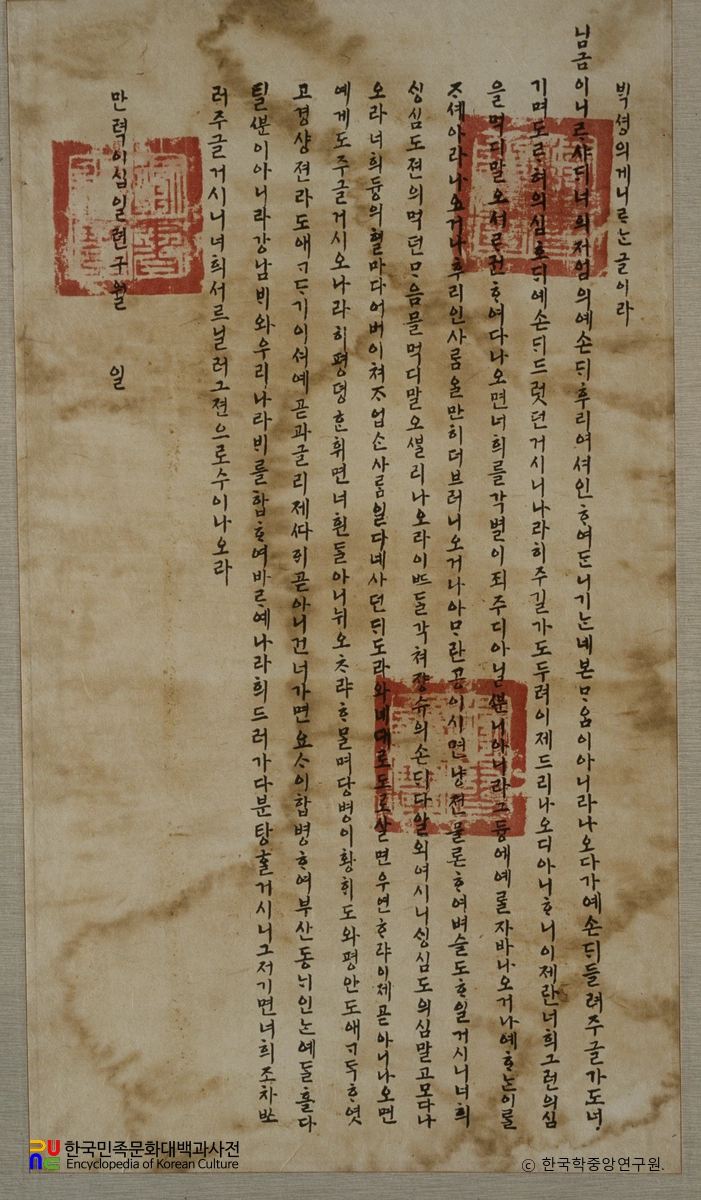 ᄇᆡᆨ셩의게니ᄅᆞᄂᆞᆫ글이라
님금이니ᄅᆞ샤ᄃᆡ너희처엄의예손ᄃᆡ후리여셔인ᄒᆞ여ᄃᆞᆫ니기ᄂᆞᆫ네본ᄆᆞᄋᆞᆷ이아니라나오다가예손ᄃᆡ들려주글가도너
기며도ᄅᆞ혀의심호ᄃᆡ예손ᄃᆡ드럿던거시니나라히주길가도두려이제드리나오디아니ᄒᆞ니이제란너희그런의심
을먹디말오서ᄅᆞ권ᄒᆞ여다나오면너희를각별이죄주디아닐ᄲᅮᆫ니아니라그듕에예ᄅᆞᆯ자바나오거나예ᄒᆞᄂᆞᆫ이ᄅᆞᆯ
ᄌᆞ셰아라나오거나후리인사ᄅᆞᆷ을만히더브러나오거나아ᄆᆞ란공이시면냥쳔믈론ᄒᆞ여벼슬도ᄒᆞ일거시니너희
ᄉᆡᆼ심도젼의먹던ᄆᆞᄋᆞᆷ믈먹디말오ᄲᆞᆯ리나오라이ᄠᅳ들각쳐쟝슈의손ᄃᆡ다알외여시니ᄉᆡᆼ심도의심말고모다나
오라너희듕의혈마다어버이쳐ᄌᆞ업ᄉᆞᆫ사ᄅᆞᆷ일다녜사던ᄃᆡ도라와녜대로도로살면우연ᄒᆞ랴이제곧아니나오면
예게도주글거시오나라히평뎡ᄒᆞᆫ휘면너흰들아니뉘오ᄎᆞ랴ᄒᆞ믈며당병이황ᄒᆡ도와평안도애ᄀᆞᄃᆞᆨᄒᆞ엿
고경샹젼라도애ᄀᆞᄃᆞ기이셔예곧과글리제ᄯᅡᄒᆡ곧아니건너가면요ᄉᆞ이합병ᄒᆞ여부산동ᄂᆡ인ᄂᆞᆫ예ᄃᆞᆯ흘다
틸ᄲᅮᆫ이아니라강남ᄇᆡ와우리나라ᄇᆡ를합ᄒᆞ여바ᄅᆞ예나라희드러가다분탕ᄒᆞᆯ거시니그저기면너희조차ᄡᅳ
러주글거시니너희서ᄅᆞ닐러그젼으로수이나오라
만력이십일년구월 일
한국민족문화대백과사전
Encyclopedia of Korean Culture
ⓒ 한국학중앙연구원.